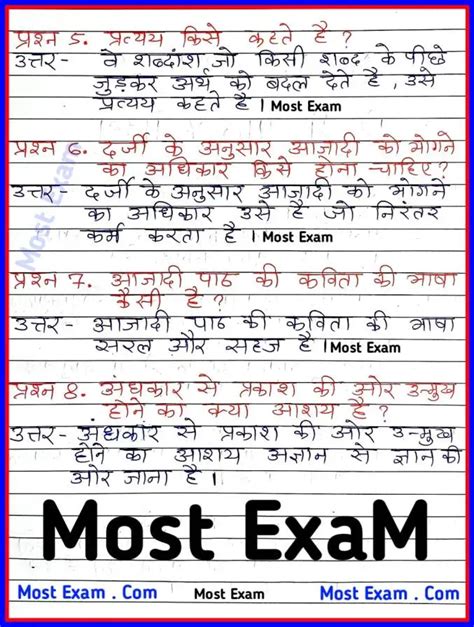 प्रश्न 5. प्रत्यय किसे कहते है ?
उत्तर- वे शब्दांश जो किसी शब्द के पीछे
जुड़कर अर्थ को बदल देते है , उसे
प्रत्यय कहते है । Most Exam
प्रश्न 6. दर्जी के अनुसार आज़ादी को भोगने
का अधिकार किसे होना चाहिए ?
उत्तर- दर्जी के अनुसार आज़ादी को भोगने
का अधिकार उसे है जो निरंतर
कर्म करता है । Most Exam
Most Exam
प्रश्न 7. आज़ादी पाठ की कविता की भाषा
कैसी है ?
उत्तर- आज़ादी पाठ की कविता की भाषा
सरल और सहज है । Most Exam
प्रश्न 8. अंधकार से प्रकाश की ओर उन्मुख
होने का क्या आशय है ?
उत्तर- अंधकार से प्रकाश की ओर उन्मुख
होने का आशय अज्ञान से ज्ञान की
ओर जाना है ।
Most ExaM
Most Exam . Com Most Exam Most Exam . Com